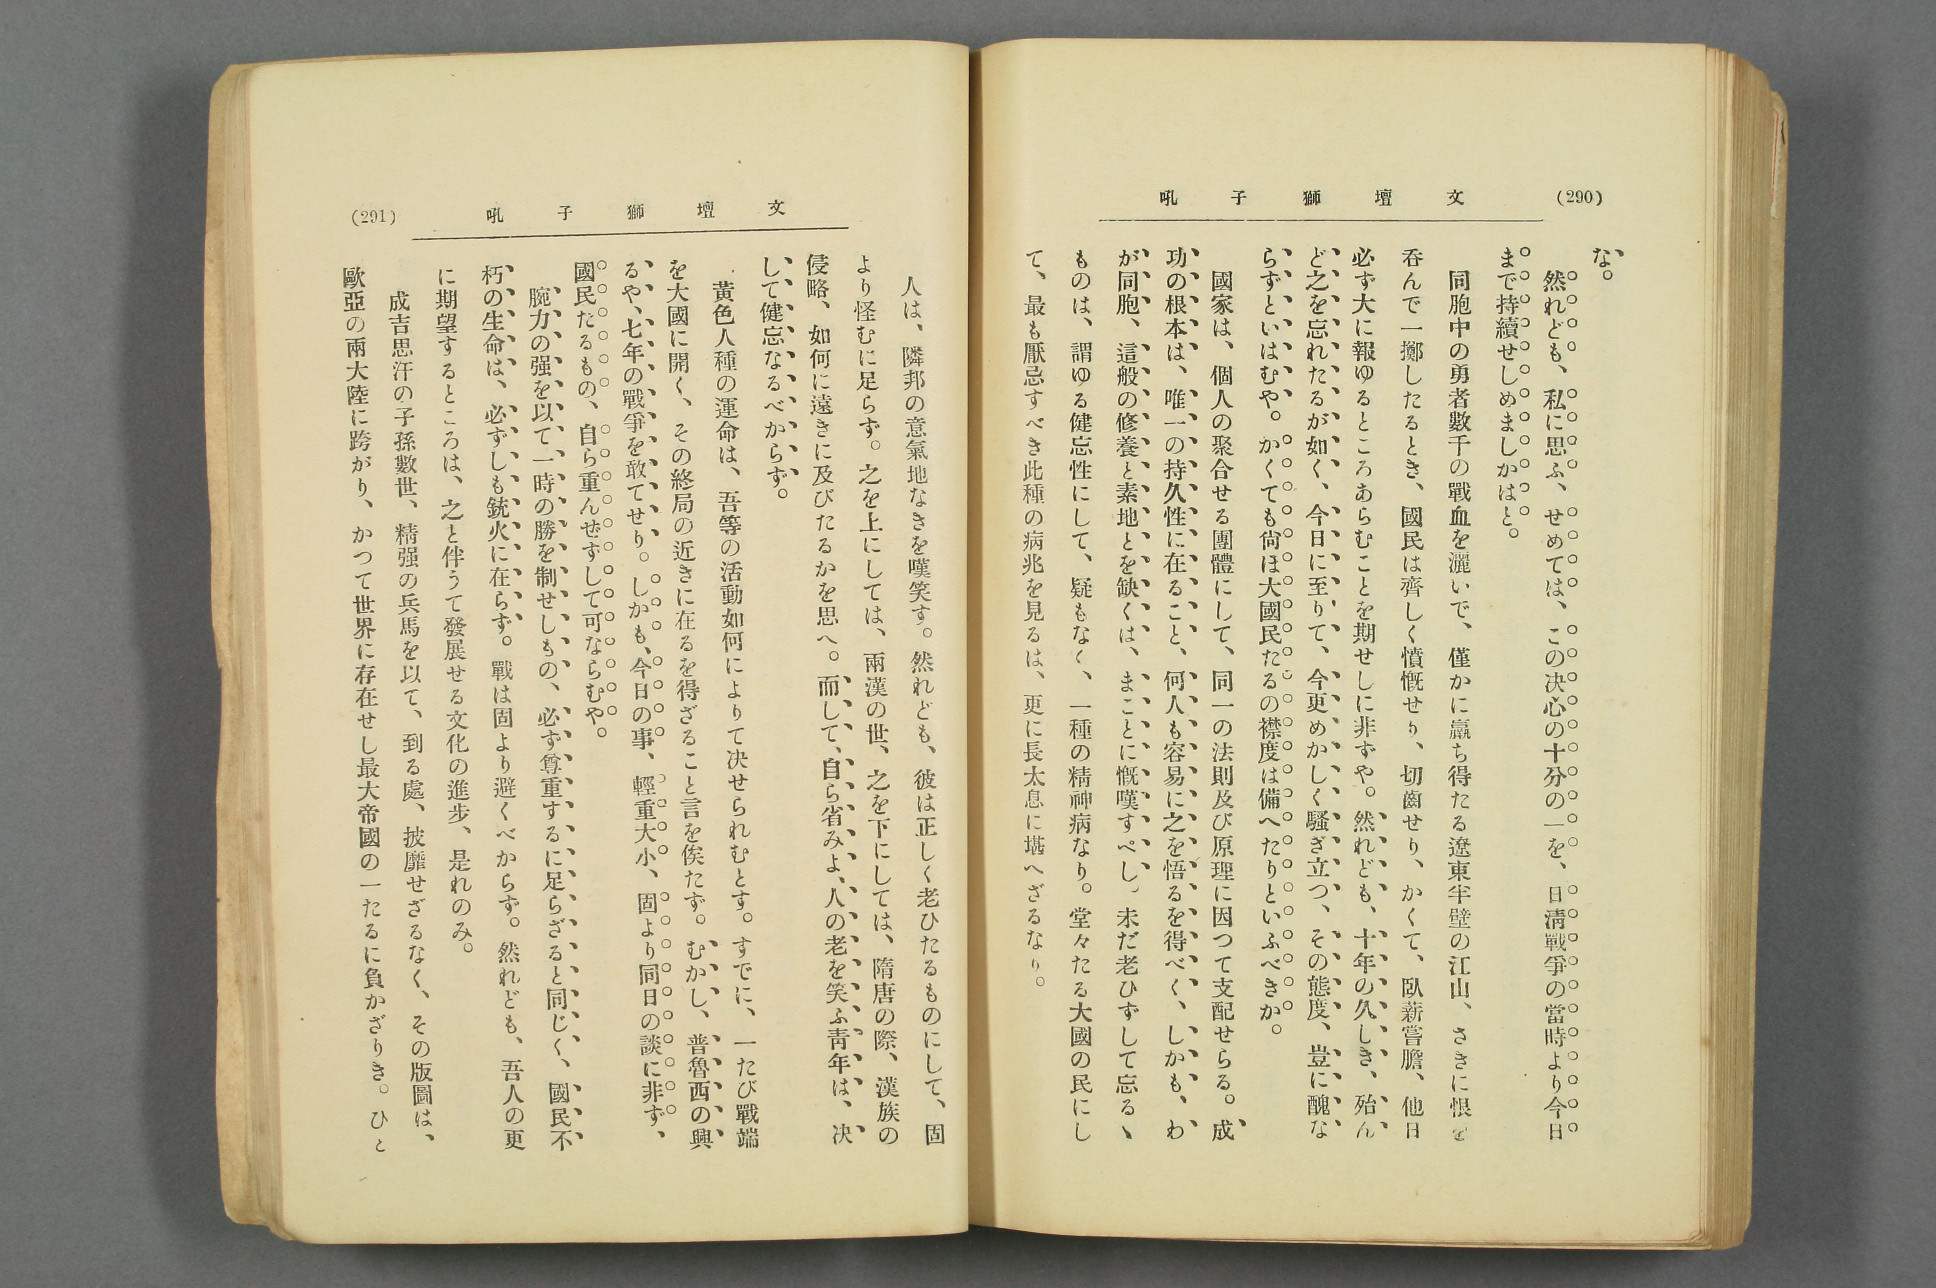 (290)
文壇獅子吼
な。
然れども、私に思ふ、せめては、この决心の十分の一を、日淸戰爭の當時より今日
まで持續せしめましかはと。
同胞中の勇者數千の戰血を灑いで、僅かに贏ち得たる遼東半壁の江山、さきに恨を
呑んで一擲したるとき、國民は齊しく憤慨せり、切齒せり、かくて、臥薪嘗膽、他日
必ず大に報ゆるところあらむことを期せしに非ずや。然れども、十年の久しき、殆ん
ど之を忘れたるが如く、今日に至りて、今更めかしく騷ぎ立つ、その態度、豈に醜な
らずといはむや。かくても尙ほ大國民たるの襟度は備へたりといふべきか。
國家は、個人の聚合せる團體にして、同一の法則及び原理に因つて支配せらる。成
功の根本は、唯一の持久性に在ること、何人も容易に之を悟るを得べく、しかも、わ
が同胞、這般の修養と素地とを缺くは、まことに慨嘆すべし。未だ老ひずして忘るゝ
ものは、謂ゆる健忘性にして、疑もなく、一種の精神病なり。堂々たる大國の民にし
て、最も厭忌すべき此種の病兆を見るは、更に長太息に堪へざるなり。
文壇獅子吼
(291)
人は、隣邦の意氣地なきを嘆笑す。然れども、彼は正しく老ひたるものにして、固
より怪むに足らず。之を上にしては、兩漢の世、之を下にしては、隋唐の際、漢族の
侵略、如何に遠きに及びたるかを思へ。而して、自ら省みよ、人の老を笑ふ靑年は、决
して健忘なるべからず。
黃色人種の運命は、吾等の活動如何によりて决せられむとす。すでに、一たび戰端
を大國に開く、その終局の近きに在るを得ざること言を俟たず。むかし、普魯西の興
るや、七年の戰爭を敢てせり。しかも、今日の事、輕重大小、固より同日の談に非ず、
國民たるもの、自ら重んせずして可ならむや。
腕力の强を以て一時の勝を制せしもの、必ず尊重するに足らざると同じく、國民不
朽の生命は、必ずしも銃火に在らず。戰は固より避くべからず。然れども、吾人の更
に期望するところは、之と伴うて發展せる文化の進步、是れのみ。
成吉思汗の子孫數世、精强の兵馬を以て、到る處、披靡せざるなく、その版圖は、
歐亞の兩大陸に跨がり、かつて世界に存在せし最大帝國の一たるに負かざりき。ひと